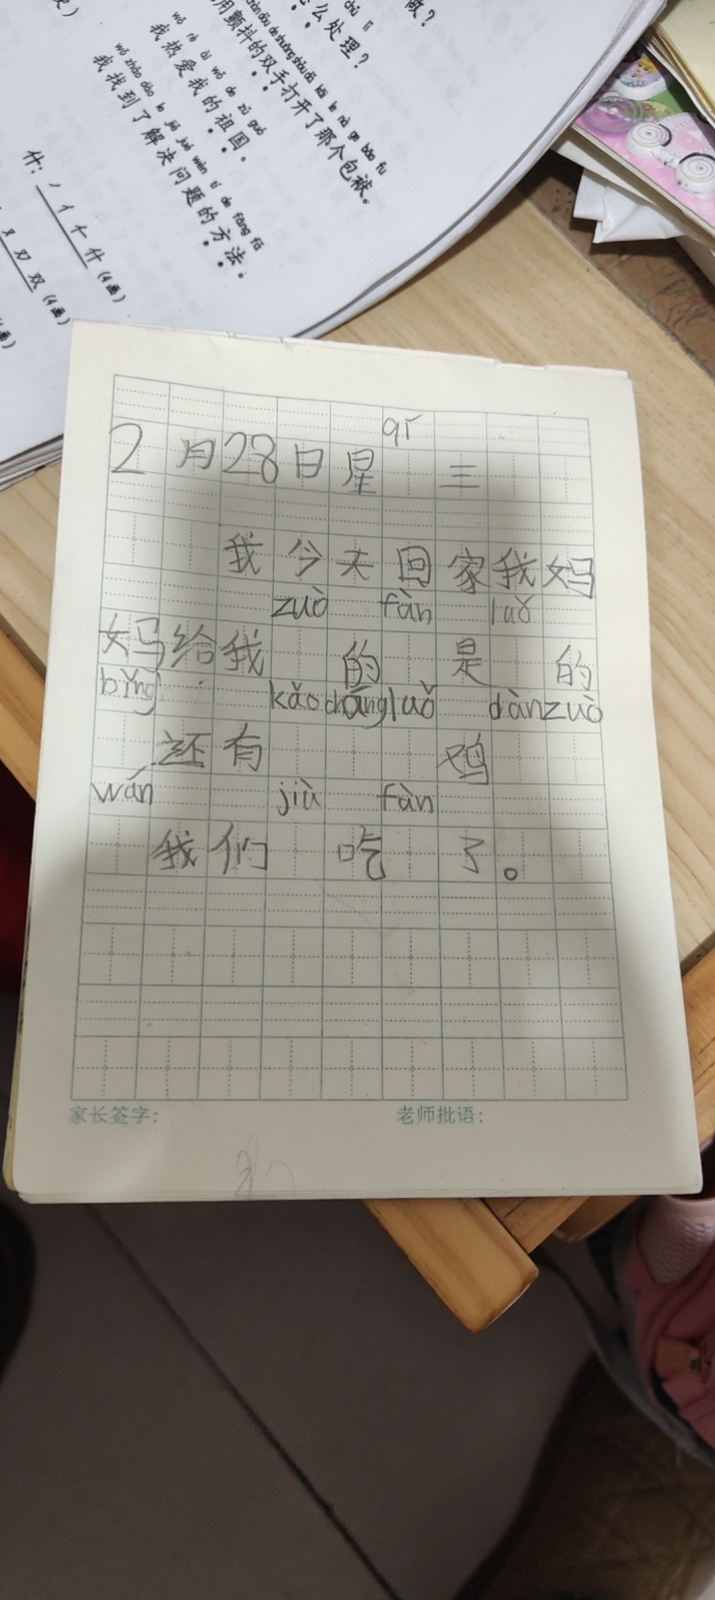 做？
chǔ lǐ
么处理？
用颤抖的双手打开了那个包袱。
wǒ rè ài wǒ de zǔ guó
我热爱我的祖国。
wǒ zhǎo dào le jiě jué wèn tí de fāng fǎ
我找到了解决问题的方法；
什：丿亻仁什（4画）
双（4画）
qī
2月28日星 三
我今天回家我妈
zuò fàn luǒ
妈给我 的 是 的
bǐng kǎo chāng luǒ dàn zuò
还有 鸡
wán jiù fàn
我们 吃 了。
家长签字： 老师批语：